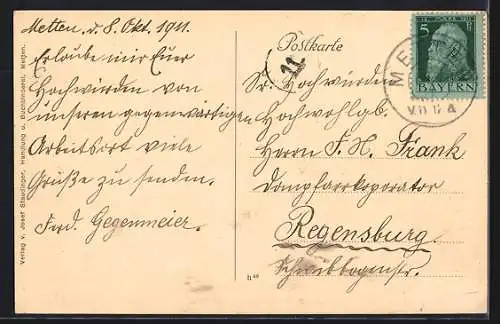 Metten, d. 8. Okt. 1911.
Erlaube mir Euer
Hochwürden von
unseren gegenwärtigen
Arbeitsort viele
Grüße zu senden.
Ferd. Gegenmeier.
Verlag v. Josef Staudinger, Handlung u. Buchbinderei, Metten.
Postkarte
11
5
BAYERN
MET
Sr. Hochwürden
Hochwohlgb.
Herrn F. N. Frank
Dompfarrkoperator
Regensburg.
Schreibbogenstr.